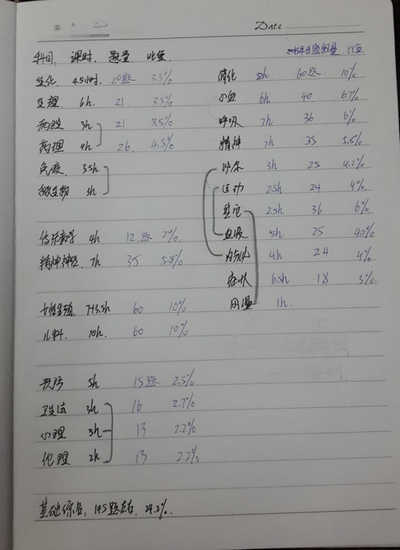 Date
科目. 课时. 题量 比重
生化 4.5小时. 20题 3.5%
生理 6h. 21 3.5%
病理 3h 21 3.5%
药理 4h 26 4.5%
免疫 3.5h
微生物 3h
传染 4h 12题 2%
精神神经 7h 35 5.8%
60 10%
儿科. 10h. 60 10%
预防 5h 15题 2.5%
卫生法 3h 16 2.7%
心理 3h 13 2.2%
伦理 2h 13 2.2%
基础综合, 145题左右, 24.2%.
消化 8h 60题 10%
心血 6h 40 6.7%
呼吸 7h 36 6%
精神 7h 35 5.8%
泌尿 3h 25 4.2%
运动 2.5h 24 4%
其它 2.5h 36 6%
血液 5h 25 4.2%
内分泌 4h 24 4%
症状 6.5h 18 3%
1h.